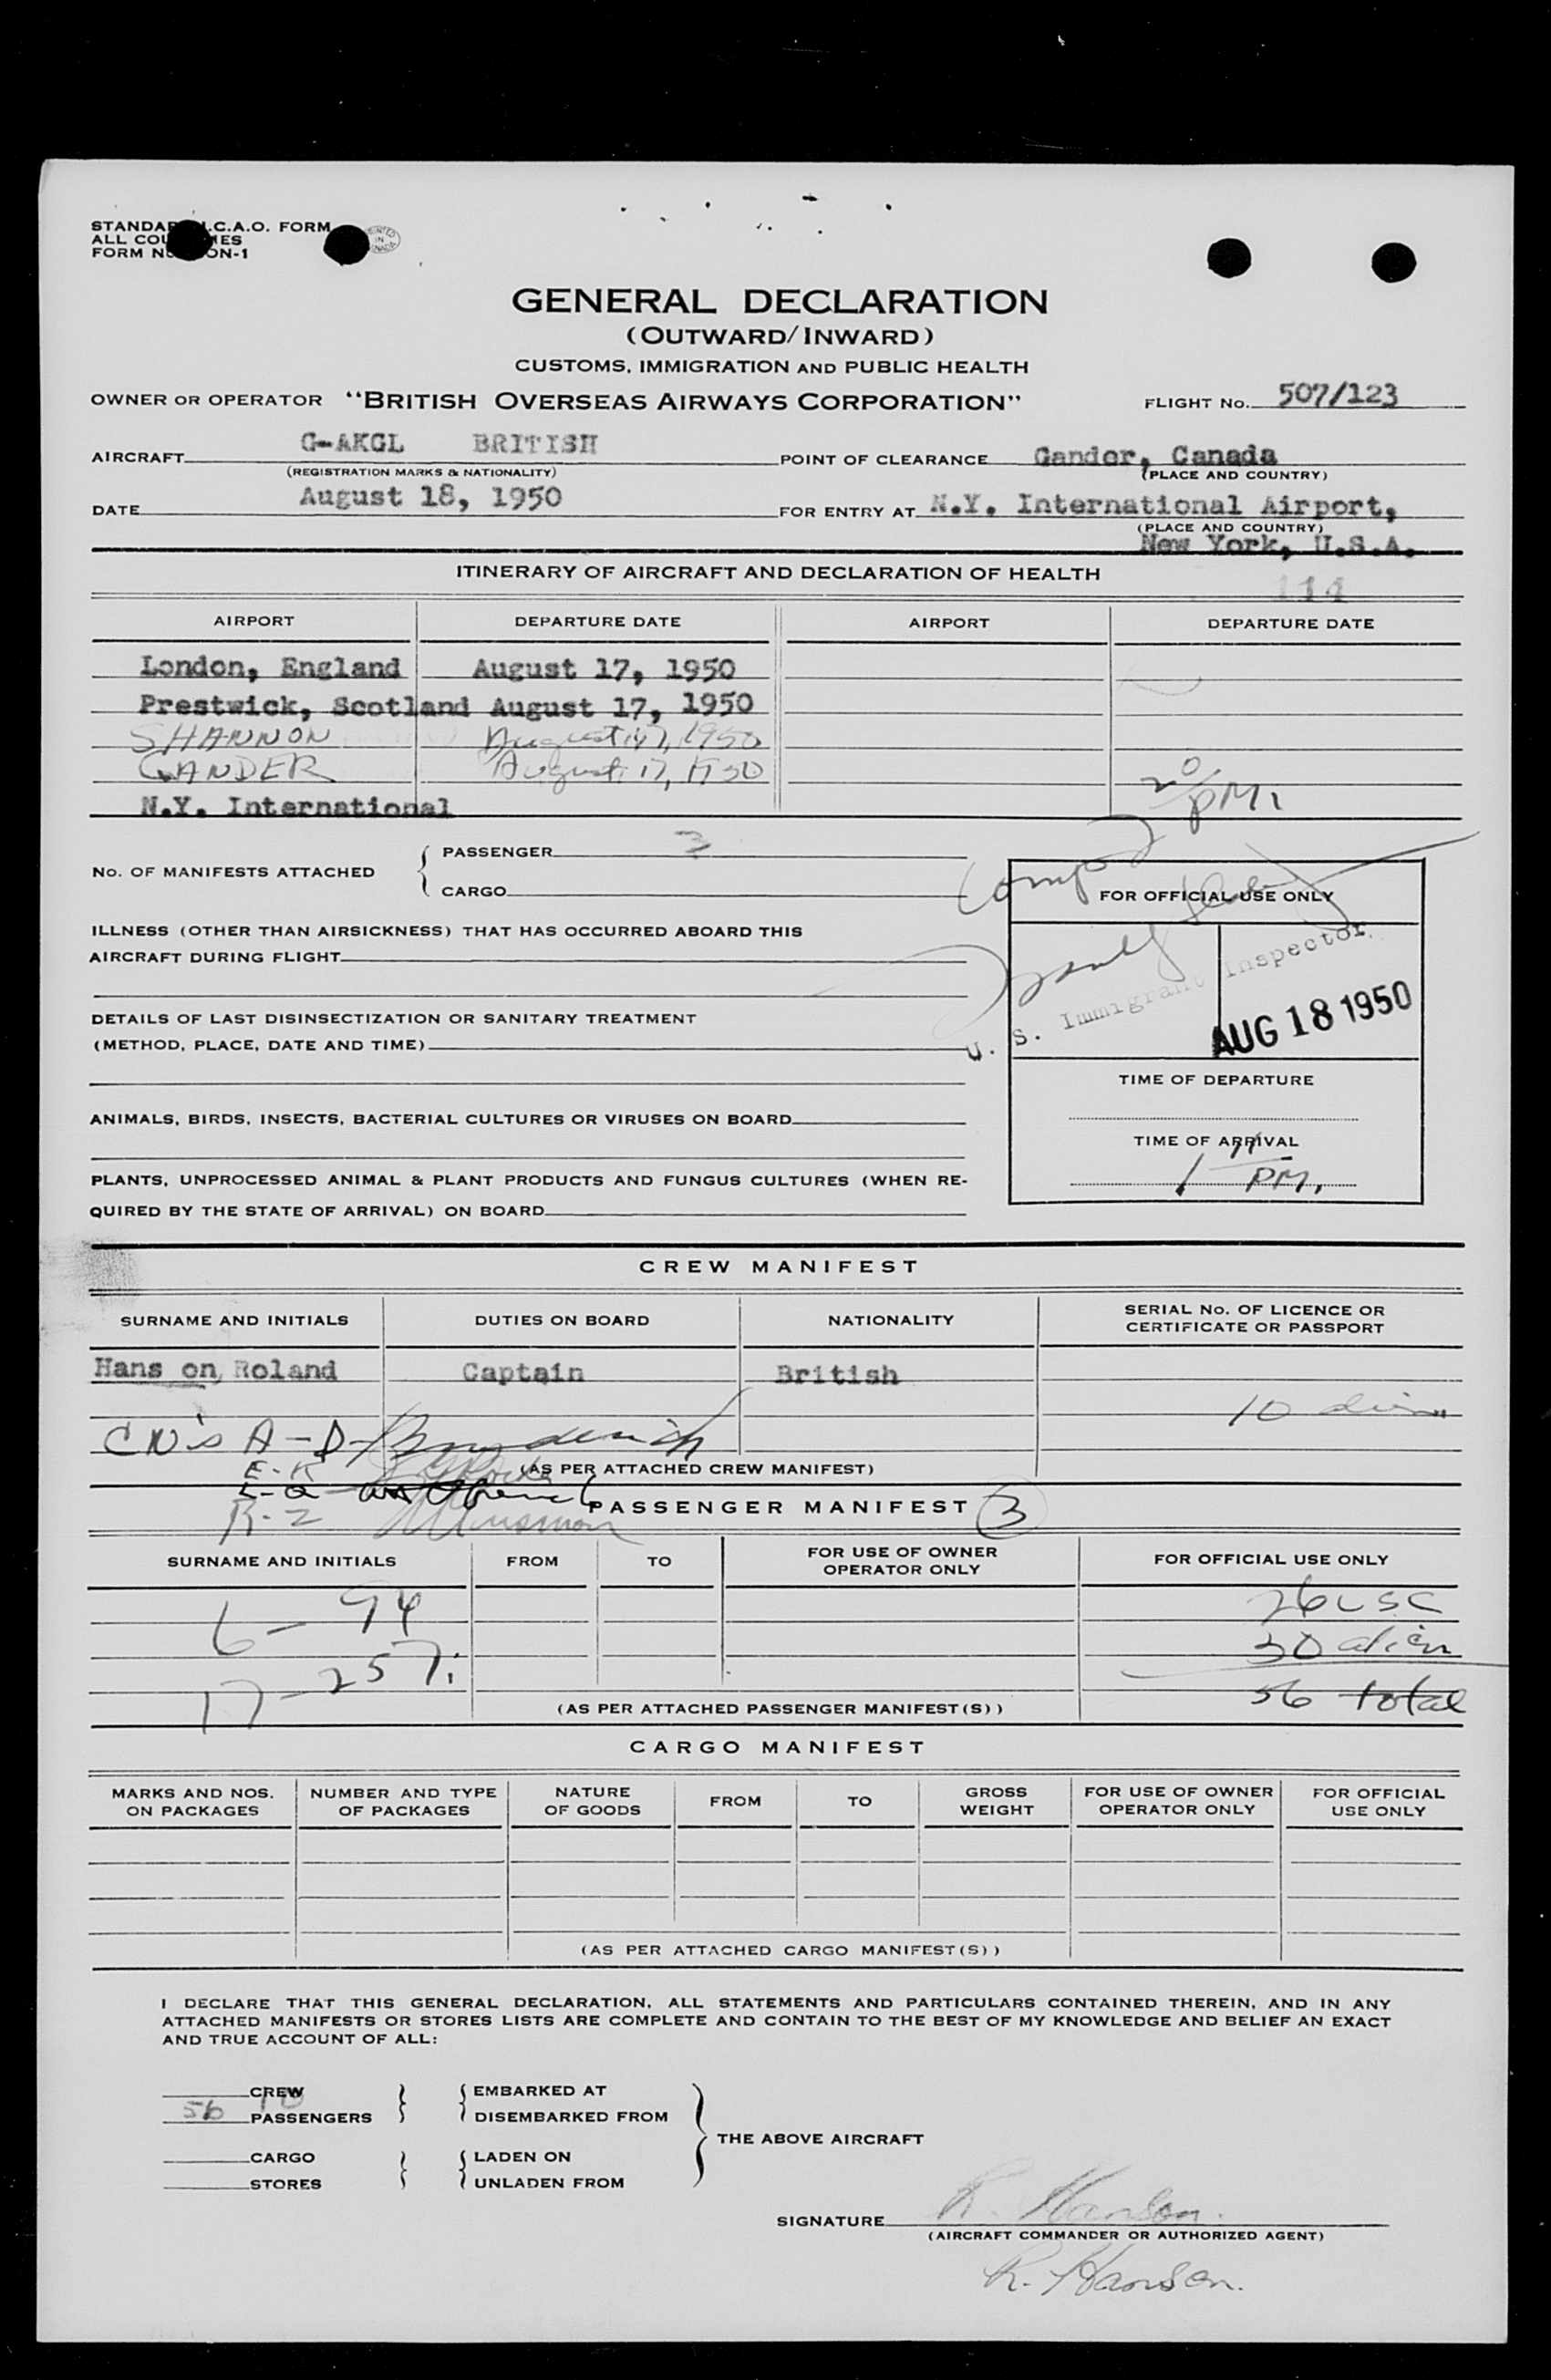 STANDAR I.C.A.O. FORM
ALL COU IES
FORM N ON-1
PRINTED IN CANADA
GENERAL DECLARATION
(OUTWARD/INWARD)
CUSTOMS, IMMIGRATION AND PUBLIC HEALTH
OWNER OR OPERATOR "BRITISH OVERSEAS AIRWAYS CORPORATION" FLIGHT No. 507/123
AIRCRAFT G-AKGL BRITISH POINT OF CLEARANCE Gander, Canada
(REGISTRATION MARKS & NATIONALITY) (PLACE AND COUNTRY)
DATE August 18, 1950 FOR ENTRY AT N.Y. International Airport,
(PLACE AND COUNTRY)
New York, U.S.A.
ITINERARY OF AIRCRAFT AND DECLARATION OF HEALTH 114
AIRPORT DEPARTURE DATE AIRPORT DEPARTURE DATE
London, England August 17, 1950
Prestwick, Scotland August 17, 1950
SHANNON August 17, 1950
GANDER August 17, 1950
N.Y. International
2 0/ PM.
No. OF MANIFESTS ATTACHED
PASSENGER 3
CARGO
Comp
FOR OFFICIAL USE ONLY
ILLNESS (OTHER THAN AIRSICKNESS) THAT HAS OCCURRED ABOARD THIS
AIRCRAFT DURING FLIGHT
U. S. Immigrant Inspector.
AUG 18 1950
DETAILS OF LAST DISINSECTIZATION OR SANITARY TREATMENT
(METHOD, PLACE, DATE AND TIME)
TIME OF DEPARTURE
ANIMALS, BIRDS, INSECTS, BACTERIAL CULTURES OR VIRUSES ON BOARD
TIME OF ARRIVAL
1 11 PM.
PLANTS, UNPROCESSED ANIMAL & PLANT PRODUCTS AND FUNGUS CULTURES (WHEN RE-
QUIRED BY THE STATE OF ARRIVAL) ON BOARD
CREW MANIFEST
SURNAME AND INITIALS DUTIES ON BOARD NATIONALITY SERIAL No. OF LICENCE OR
CERTIFICATE OR PASSPORT
Hans on, Roland Captain British
10
A-D-
E-K
(AS PER ATTACHED CREW MANIFEST)
L-Q
R-Z
PASSENGER MANIFEST 3
SURNAME AND INITIALS FROM TO FOR USE OF OWNER
OPERATOR ONLY FOR OFFICIAL USE ONLY
6 - 94 26 USC
30 alien
17 - 257i 56 total
(AS PER ATTACHED PASSENGER MANIFEST(S))
CARGO MANIFEST
MARKS AND NOS.
ON PACKAGES NUMBER AND TYPE
OF PACKAGES NATURE
OF GOODS FROM TO GROSS
WEIGHT FOR USE OF OWNER
OPERATOR ONLY FOR OFFICIAL
USE ONLY
(AS PER ATTACHED CARGO MANIFEST(S))
I DECLARE THAT THIS GENERAL DECLARATION, ALL STATEMENTS AND PARTICULARS CONTAINED THEREIN, AND IN ANY
ATTACHED MANIFESTS OR STORES LISTS ARE COMPLETE AND CONTAIN TO THE BEST OF MY KNOWLEDGE AND BELIEF AN EXACT
AND TRUE ACCOUNT OF ALL:
10 CREW EMBARKED AT
56 PASSENGERS DISEMBARKED FROM
THE ABOVE AIRCRAFT
CARGO LADEN ON
STORES UNLADEN FROM
SIGNATURE R. Hanson.
(AIRCRAFT COMMANDER OR AUTHORIZED AGENT)
R. Hanson.